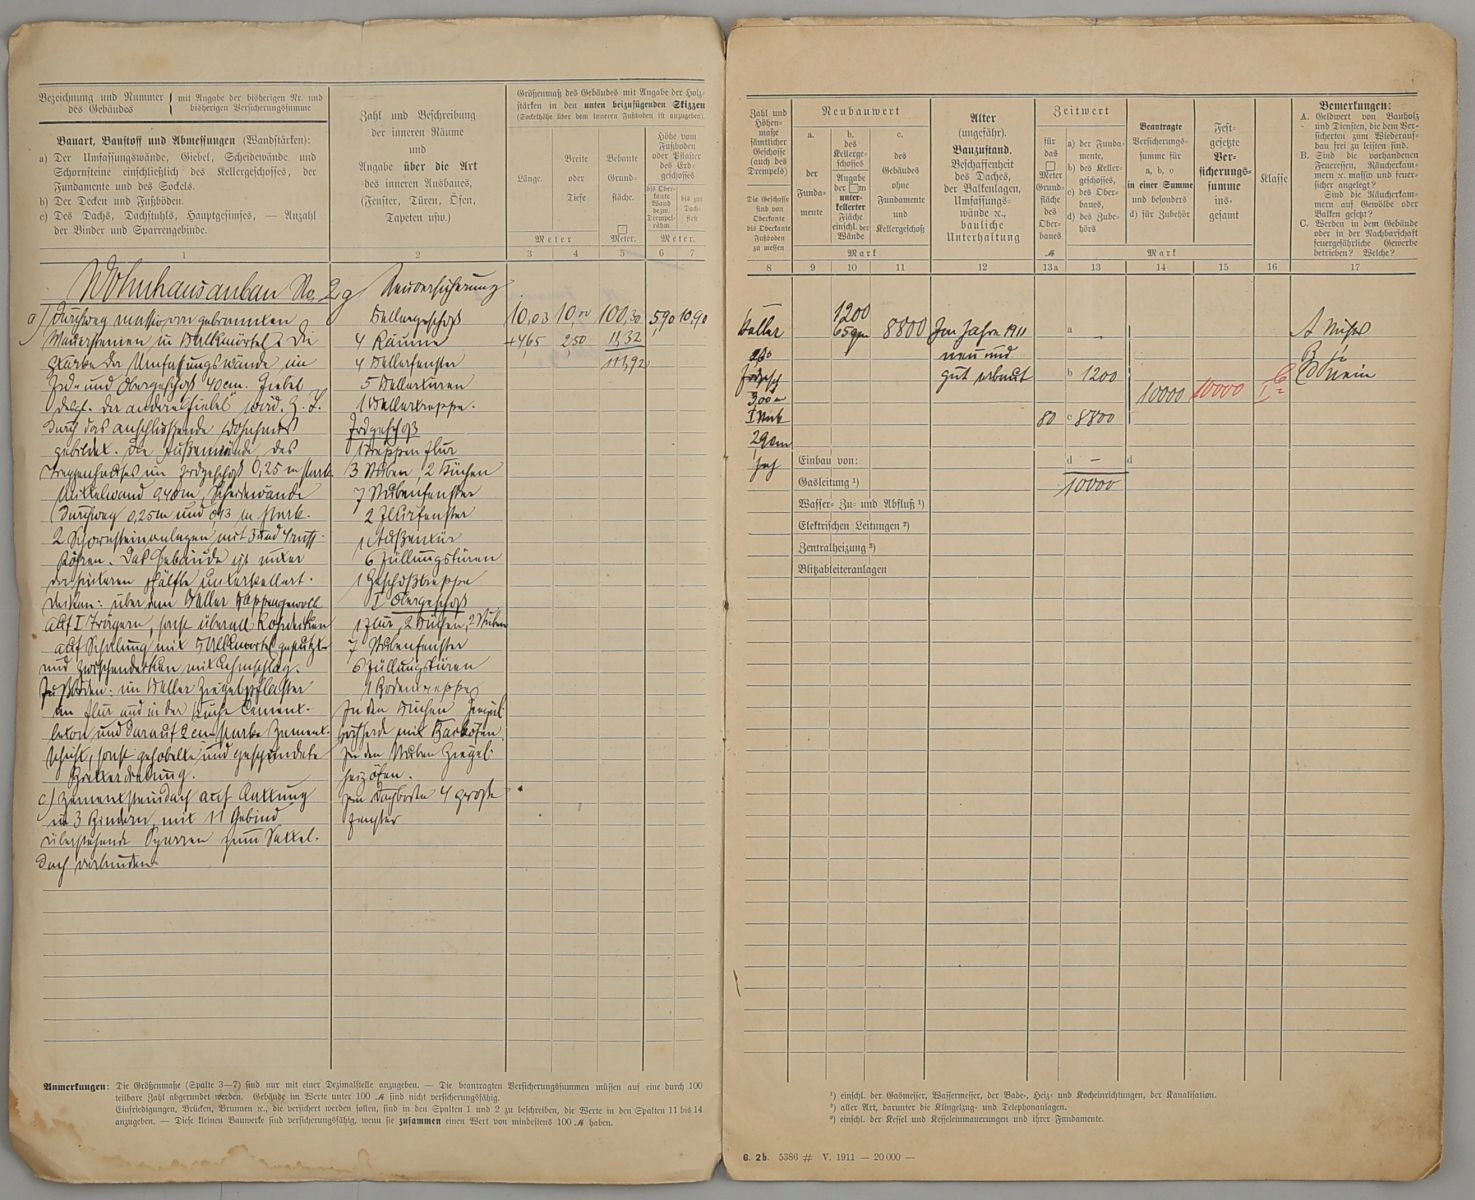 Bezeichnung und Nummer des Gebäudes
mit Angabe der bisherigen Nr. und bisherigen Versicherungssumme
Bauart, Baustoff und Abmessungen (Wandstärken):
a) Der Umfassungswände, Giebel, Scheidewände und
Schornsteine einschließlich des Kellergeschosses, der
Fundamente und des Sockels.
b) Der Decken und Fußböden.
c) Des Dachs, Dachstuhls, Hauptgesimses, — Anzahl
der Binder und Sparrengebinde.
1
Zahl und Beschreibung
der inneren Räume
und
Angabe über die Art
des inneren Ausbaues,
(Fenster, Türen, Öfen,
Tapeten usw.)
2
Größenmaß des Gebäudes mit Angabe der Holz-
stärken in den unten beizufügenden Skizzen
(Sockelhöhe über dem inneren Fußboden ist anzugeben).
Länge.
Breite
oder
Tiefe
Bebaute
Grund-
fläche.
Höhe vom
Fußboden
oder Pflaster
des Erd-
geschosses
bis Ober-
kante
Wand
bezw.
Drempel-
rähm
bis zur
Dach-
first
Meter
Meter.
Meter.
3 4 5 6 7
Wohnhausanbau No. 2g
Neuversicherung
a) Durchweg massiv von gebrannten
Mauersteinen in Kalkmörtel. Die
Stärke der Umfassungswände im
Erd- und Obergeschoß 40 cm. Giebel
desgl. der andere Giebel wird z. T.
durch das anschließende Wohnhaus
gebildet. Die Außenwände des
Treppenhauses im Erdgeschoß 0,25 m stark.
Mittelwand 0,40 m, Scheidewände
durchweg 0,25 m und 0,13 m stark.
2 Schornsteinanlagen mit
Röhren. Das Gebäude ist unter
der hinteren Hälfte unterkellert.
Decken: über dem Keller Kappengewölb
auf I Trägern, sonst überall Rohrdecken
auf Schalung mit Kalkmörtel geputzt
und Zwischendecken mit Lehmschlag.
Fußböden: im Keller Ziegelpflaster
im Flur und in der Küche Cement-
beton und darauf 2 cm starke Zement-
schicht, sonst gehobelte und gespundete
Bretterdielung.
c) Zementsteindach auf Lattung
in 3 Bindern, mit 11 Gebind
überstehende Sparren zum Sattel-
dach verbunden.
Kellergeschoß
4 Räume
4 Kellerfenster
5 Kellertüren
1 Kellertreppe.
Erdgeschoß
1 Treppenflur
3 Stuben, 2 Küchen
7 Stubenfenster
2 Flurfenster
1 Außentür
6 Füllungstüren
1 Geschoßtreppe
I Obergeschoß
1 Flur, 2 Küchen, 2 Stuben
7 Stubenfenster
6 Füllungstüren
1 Bodentreppe
In den Küchen
Kochherde mit Backöfen.
In den Stuben Ziegel-
heizöfen.
Im Dachboden 4 große
Fenster
10,03 10,00 100,30 5,90 10,90
+4,65 2,50 11,32
111,92
Anmerkungen: Die Größenmaße (Spalte 3—7) sind nur mit einer Dezimalstelle anzugeben. — Die beantragten Versicherungssummen müssen auf eine durch 100
teilbare Zahl abgerundet werden. Gebäude im Werte unter 100 ℳ sind nicht versicherungsfähig.
Einfriedigungen, Brücken, Brunnen ꝛc., die versichert werden sollen, sind in den Spalten 1 und 2 zu beschreiben, die Werte in den Spalten 11 bis 14
anzugeben. — Diese kleinen Bauwerke sind versicherungsfähig, wenn sie zusammen einen Wert von mindestens 100 ℳ haben.
Zahl und
Höhen-
maße
sämtlicher
Geschosse
(auch des
Drempels)
Die Geschosse
sind von
Oberkante
bis Oberkante
Fußboden
zu messen
8
Neubauwert
a.
der
Funda-
mente
b.
des
Kellerge-
schosses
Angabe
der □m
unter-
kellerter
Fläche
einschl. der
Wände
c.
des
Gebäudes
ohne
Fundamente
und
Kellergeschoß
Mark
9 10 11
Alter
(ungefähr).
Bauzustand.
Beschaffenheit
des Daches,
der Balkenlagen,
Umfassungs-
wände ꝛc.,
bauliche
Unterhaltung
12
Zeitwert
für
das
□
Meter
Grund-
fläche
des
Ober-
baues
ℳ
13a
a) der Funda-
mente,
b) des Keller-
geschosses,
c) des Ober-
baues,
d) des Zube-
hörs
13
Beantragte
Versicherungs-
summe für
a, b, c
in einer Summe
und besonders
d) für Zubehör
14
Fest-
gesetzte
Ver-
sicherungs-
summe
ins-
gesamt
15
Mark
Klasse
16
Bemerkungen:
A. Geldwert von Bauholz
und Diensten, die dem Ver-
sicherten zum Wiederauf-
bau frei zu leisten sind.
B. Sind die vorhandenen
Feueressen, Räucherkam-
mern ꝛc. massiv und feuer-
sicher angelegt?
Sind die Räucherkam-
mern auf Gewölbe oder
Balken gesetzt?
C. Werden in dem Gebäude
oder in der Nachbarschaft
feuergefährliche Gewerbe
betrieben? Welche?
17
Keller
Erdgesch
3,00 m
I Stock
2,90 m
1200
65 qm
8800
Im Jahre 1911
neu und
gut erbaut
a —
b 1200
80 c 8800
d — d
10000
10000
10000
I
A Nichts
B Ja
C Nein
Einbau von:
Gasleitung ¹)
Wasser- Zu- und Abfluß ¹)
Elektrischen Leitungen ²)
Zentralheizung ³)
Blitzableiteranlagen
¹) einschl. der Gasmesser, Wassermesser, der Bade-, Heiz- und Kocheinrichtungen, der Kanalisation.
²) aller Art, darunter die Klingelzug- und Telephonanlagen.
³) einschl. der Kessel und Kesseleinmauerungen und ihrer Fundamente.
G. 2b. 5386 # V. 1911 — 20 000 —